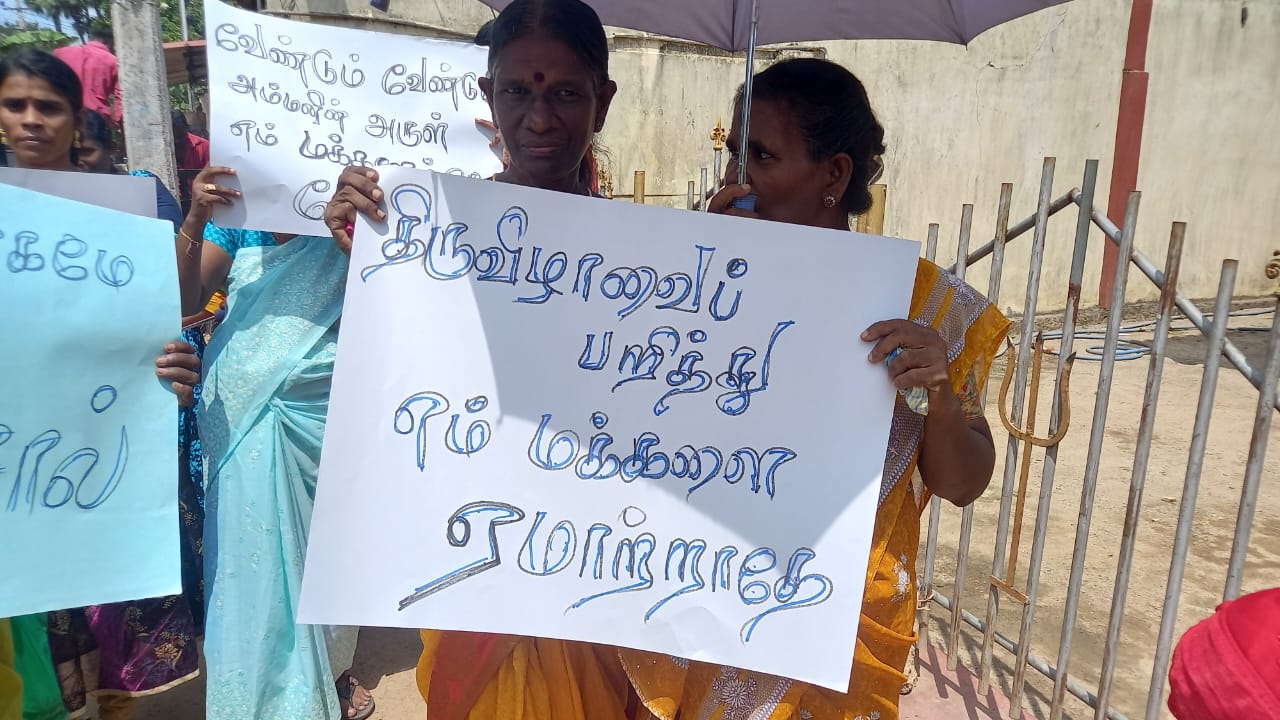 வேண்டும்
அம்மனின் அருள்
எம்
திருவிழாவைப்
பறித்து
எம் மக்களை
ஏமாற்றாதே